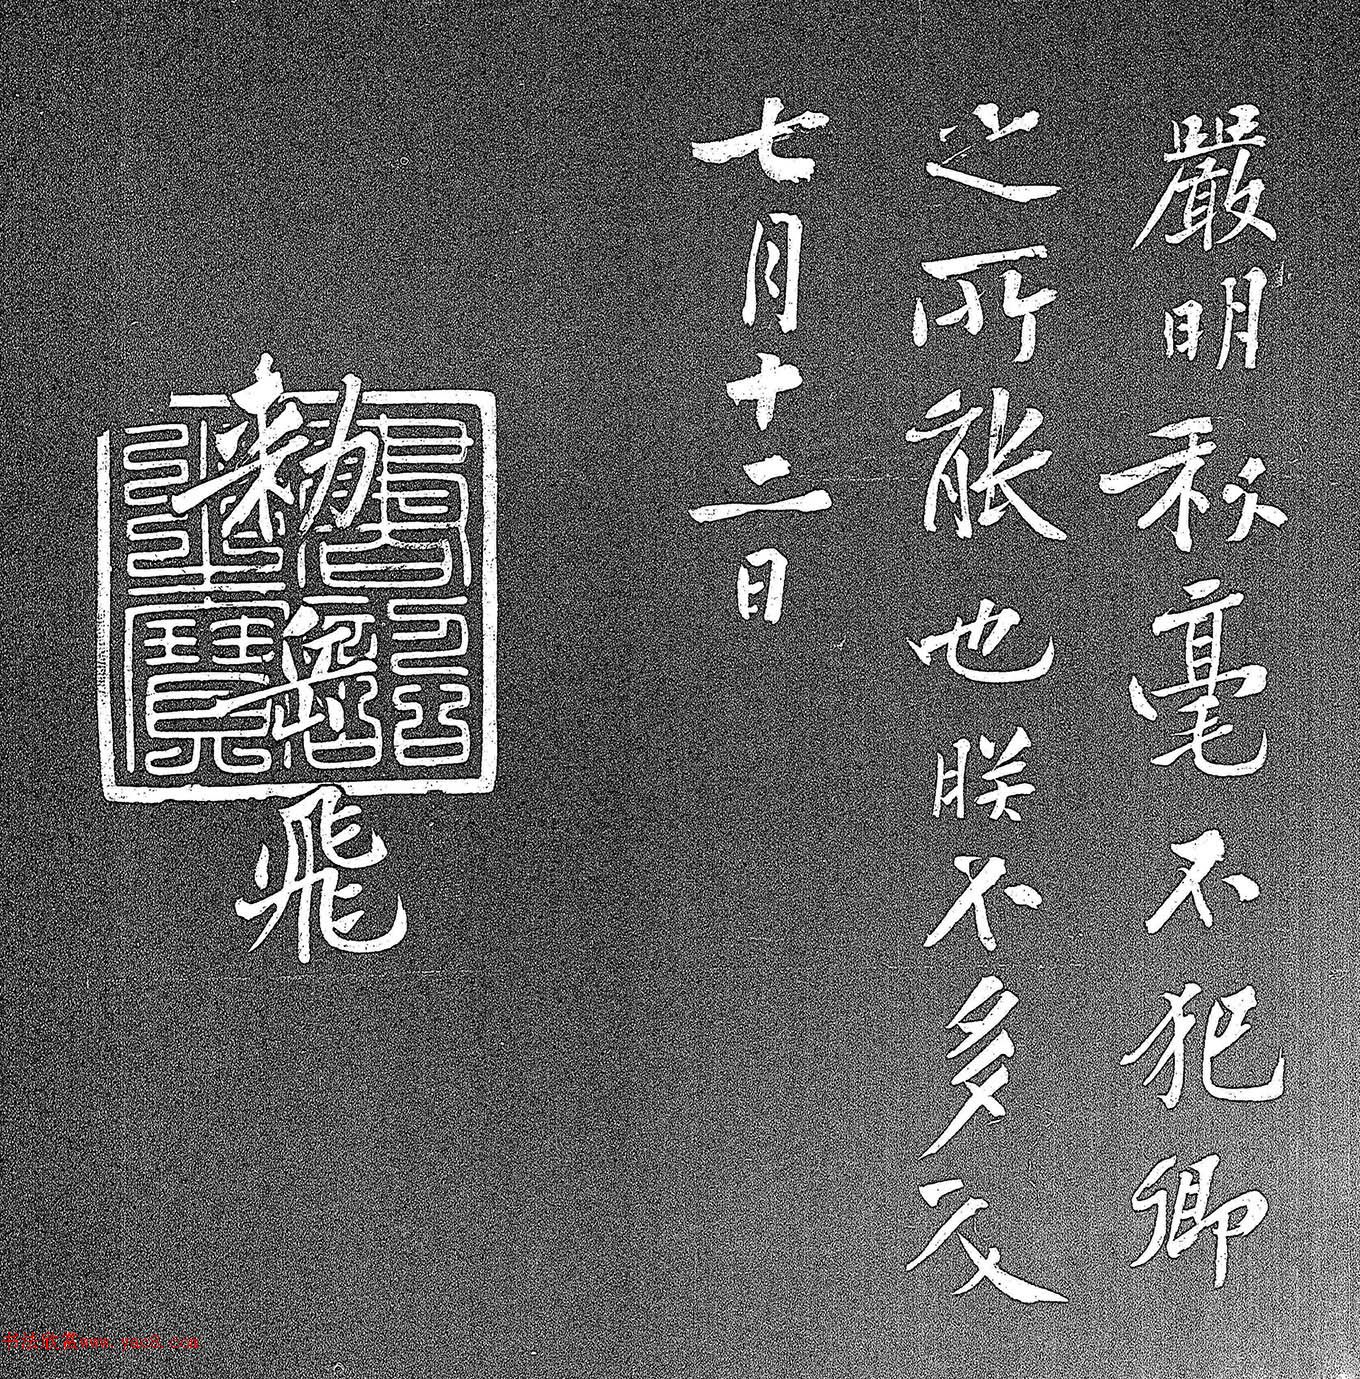 嚴明秋毫不犯卿
之所能也朕不多及
七月十二日
勑岳飛
书法欣赏www.yac8.com